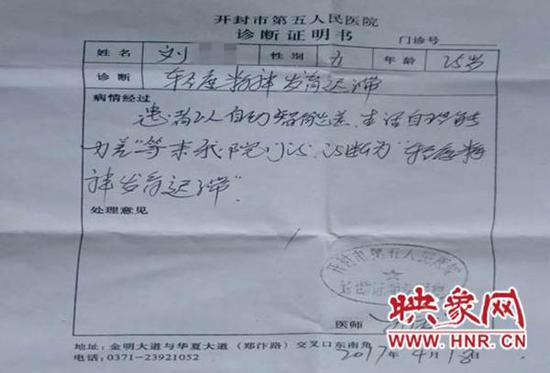 开封市第五人民医院
诊断证明书
门诊号
姓名 刘 性别 女 年龄 25岁
诊断 轻度精神发育迟滞
病情经过
患者以自幼智能差、生活自理能
力差"等来我院门诊,诊断为"轻度精
神发育迟滞"。
处理意见
开封市第五人民医院
诊断证明
医师
地址:金明大道与华夏大道(郑汴路)交叉口东南角
电话:0371-23921052
2017年4月18日
映象网
WWW·HNR.CN